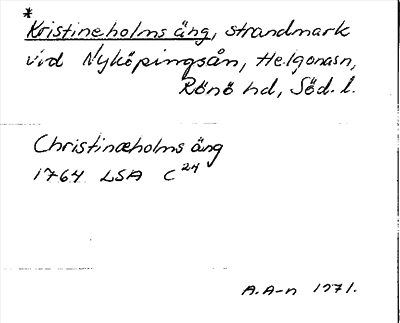 *
Kristineholms äng, strandmark
vid Nyköpingsån, Helgonasn,
Rönö hd, Söd. l.
Christinæholms äng
1764 LSA C24
A.A-n 1971.